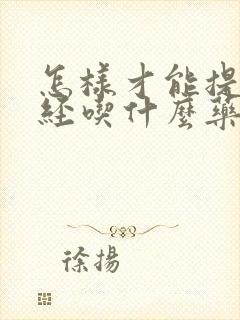 怎樣才能提
經喫什麼藥
徐揚